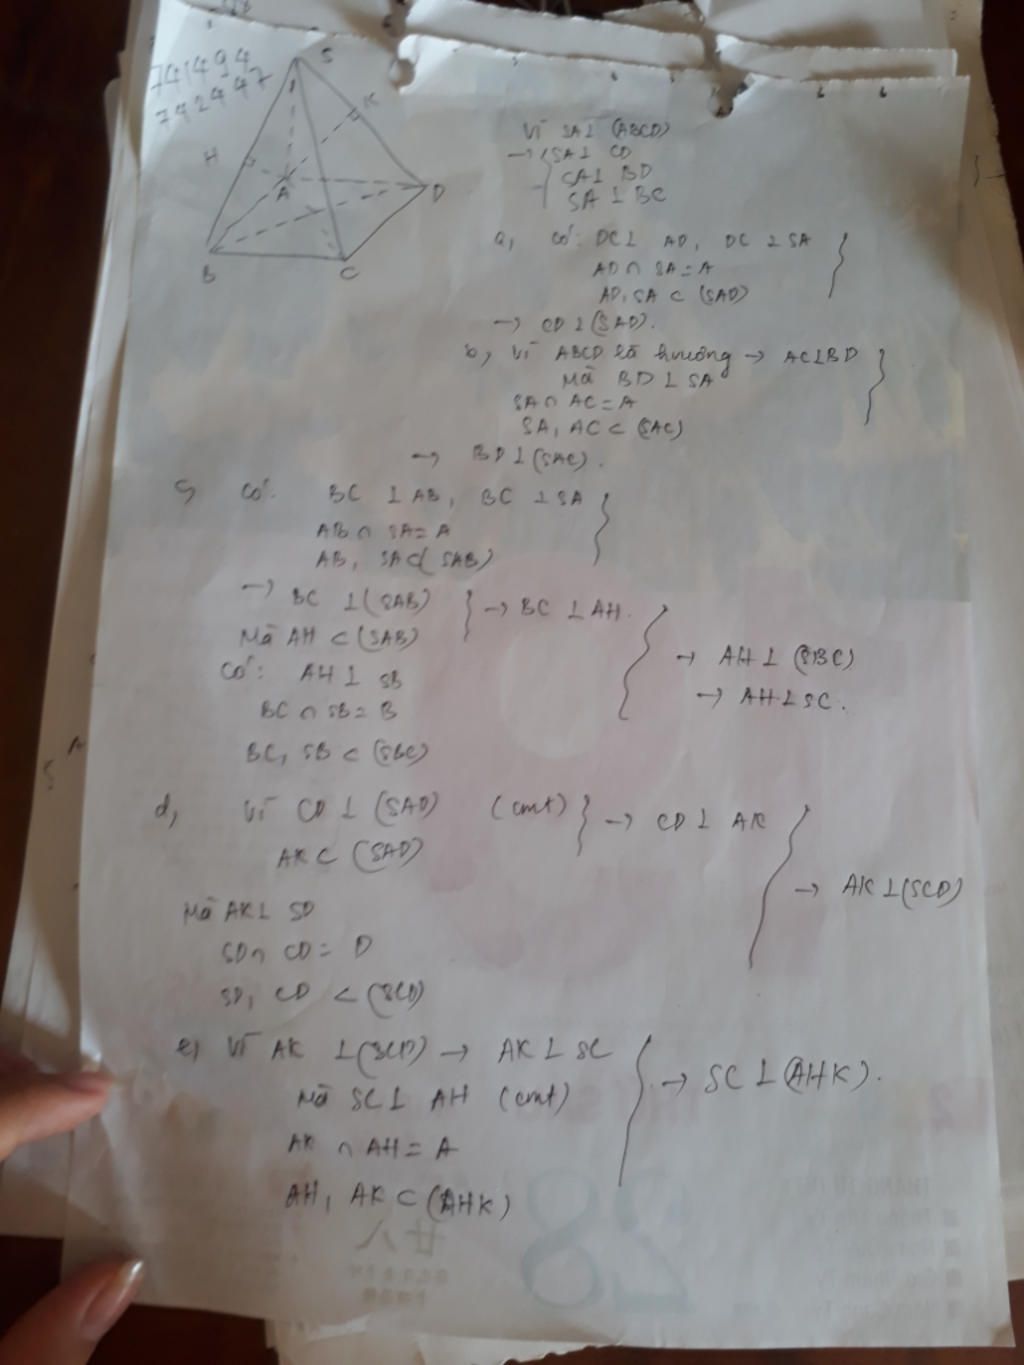 741494
742447
S
K
H
A
D
B
C
Vì SA⊥ (ABCD)
→ SA⊥ CD
SA⊥ BD
SA ⊥ BC
a, Có: DC⊥ AD, DC ⊥ SA
AD ∩ SA = A
AD, SA ⊂ (SAD)
→ CD ⊥ (SAD).
b, Vì ABCD là hvuông → AC⊥BD
Mà BD ⊥ SA
SA ∩ AC = A
SA, AC ⊂ (SAC)
→ BD ⊥ (SAC).
c, Có: BC ⊥ AB, BC ⊥ SA
AB ∩ SA = A
AB, SA ⊂ (SAB)
→ BC ⊥ (SAB) → BC ⊥ AH.
Mà AH ⊂ (SAB)
→ AH ⊥ (SBC)
Có: AH ⊥ SB
→ AH ⊥ SC.
BC ∩ SB = B
BC, SB ⊂ (SBC)
d, Vì CD ⊥ (SAD) (cmt) → CD ⊥ AK
AK ⊂ (SAD)
→ AK ⊥ (SCD)
Mà AK ⊥ SD
SD ∩ CD = D
SD, CD ⊂ (SCD)
e, Vì AK ⊥ (SCD) → AK ⊥ SC
→ SC ⊥ (AHK).
Mà SC ⊥ AH (cmt)
AK ∩ AH = A
AH, AK ⊂ (AHK)
28
廿八